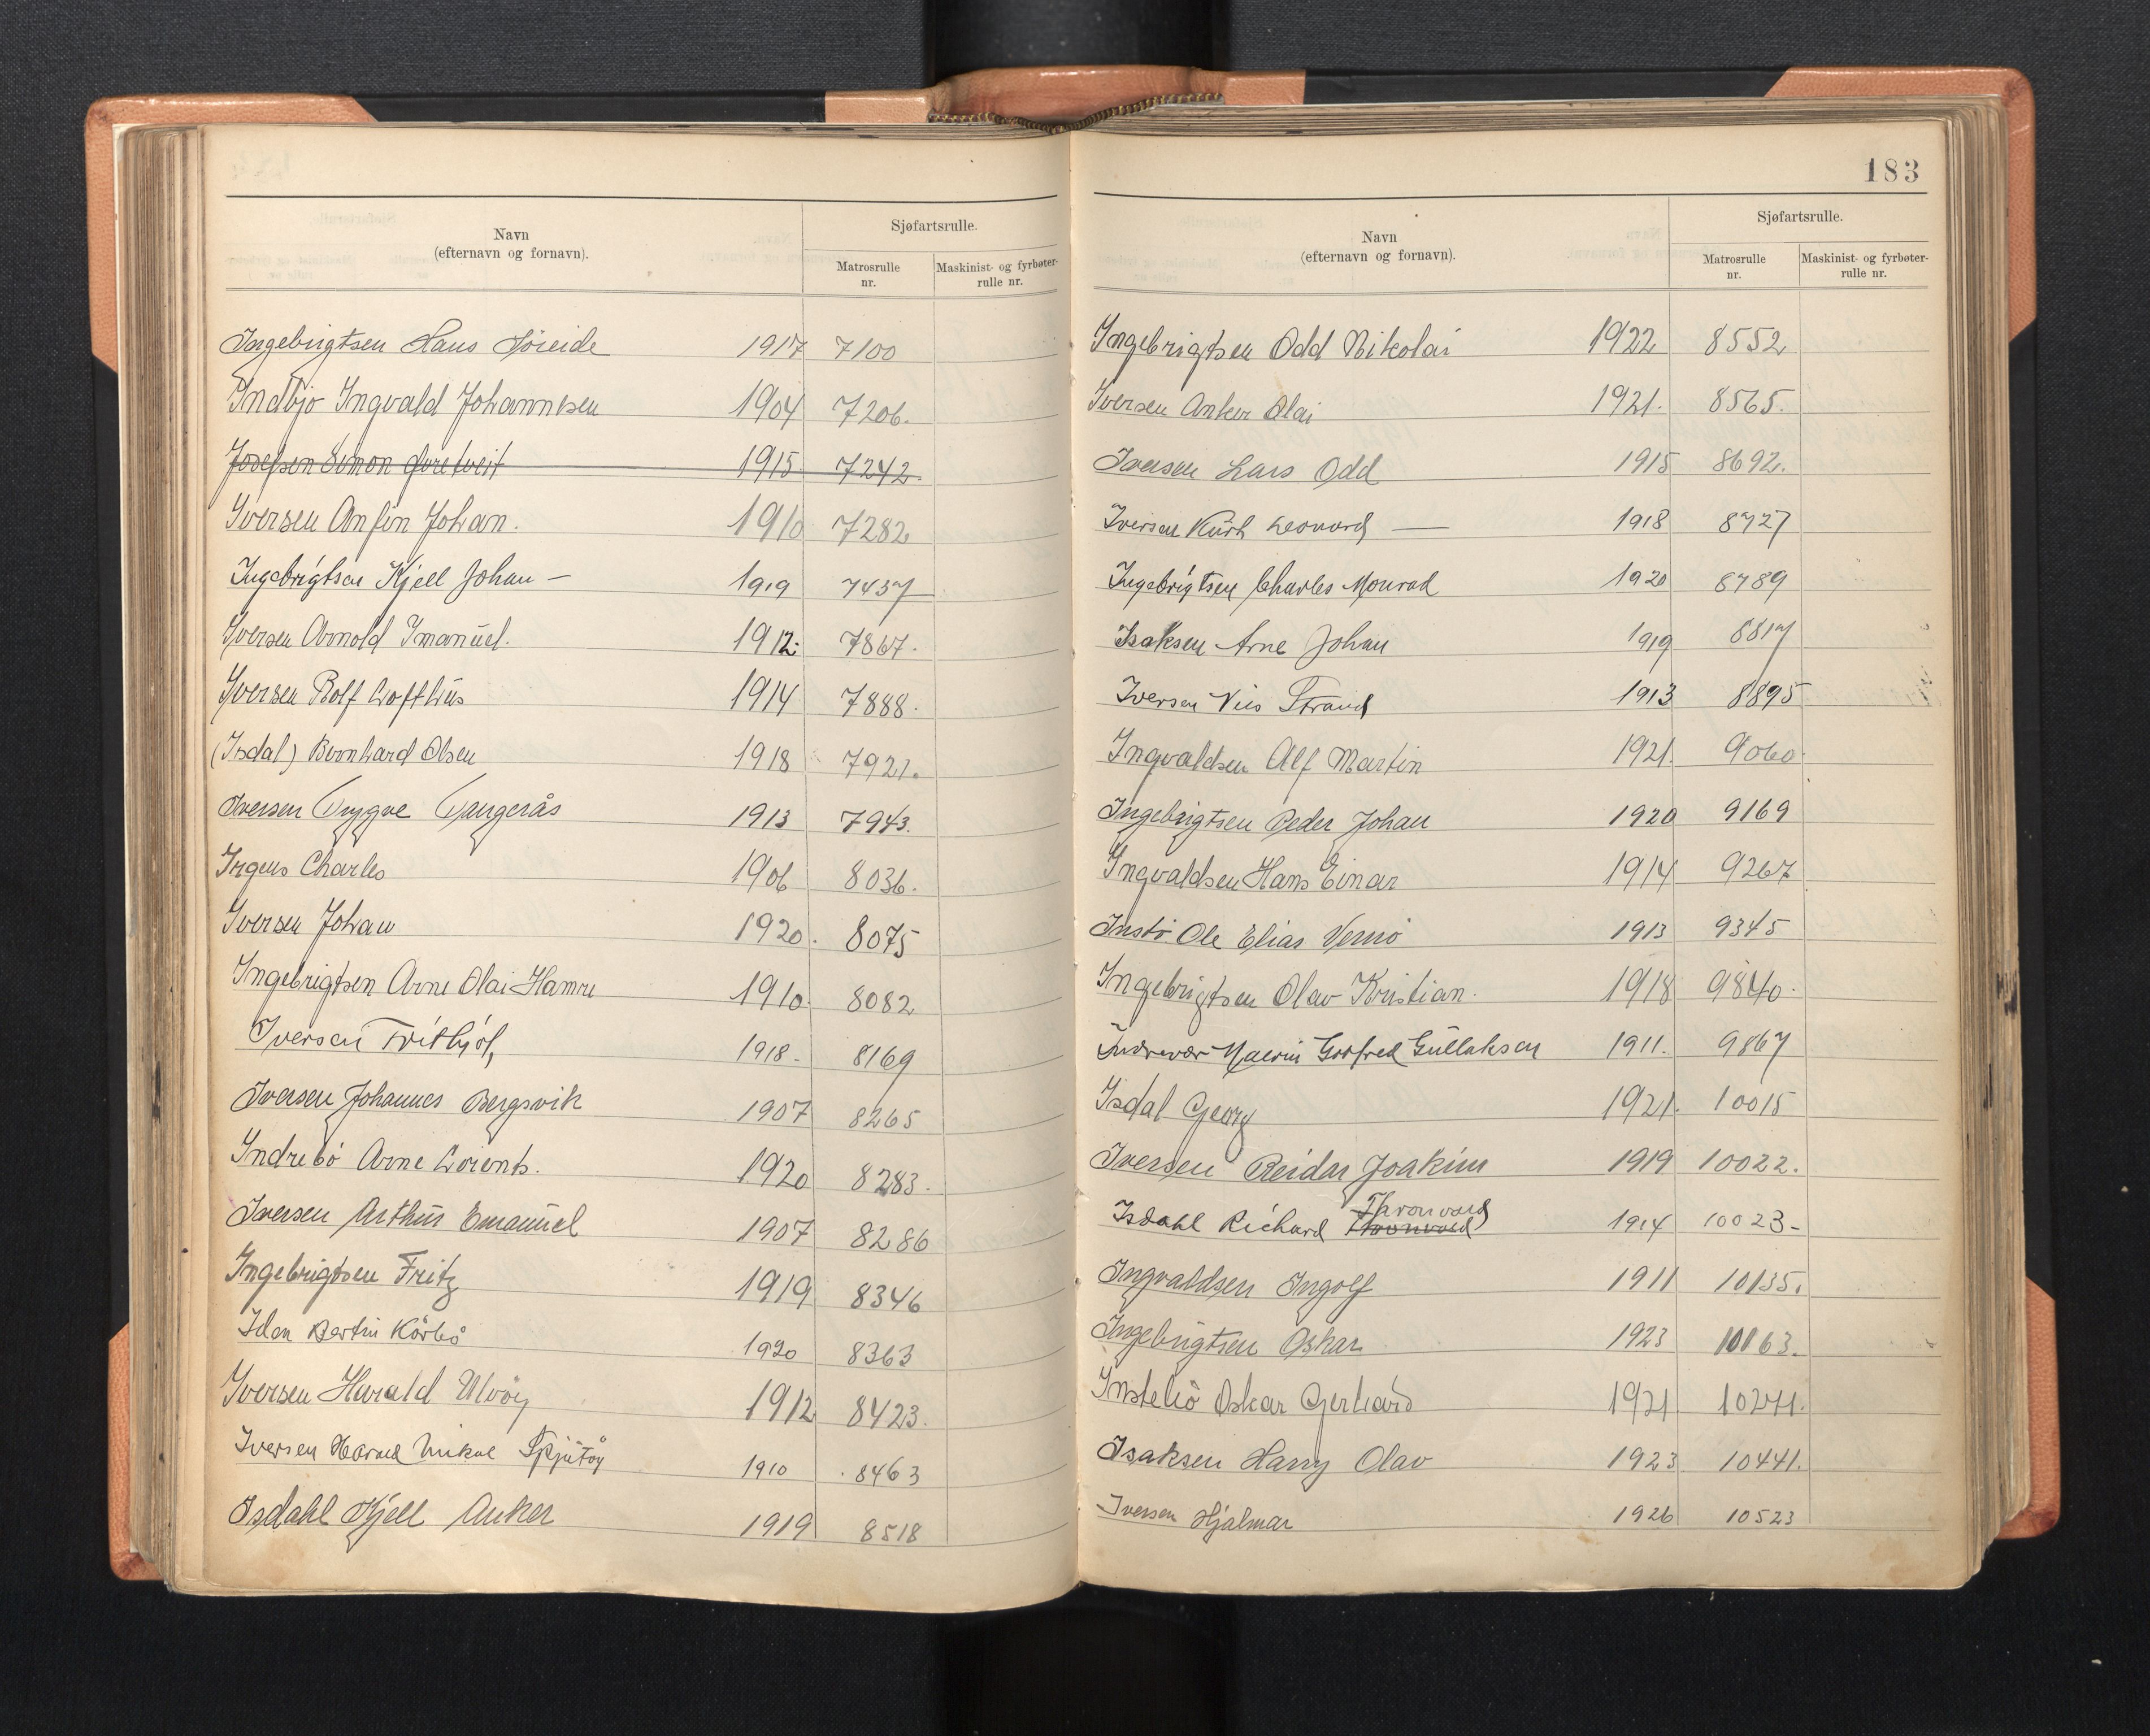 Navn
(efternavn og fornavn).
Sjøfartsrulle.
Matrosrulle nr.
Maskinist- og fyrbøter-rulle nr.
Ingebrigtsen Hans Söreide 1917 7100
Indbjo Ingvald Johannesen 1904 7206.
Josefsen Simon 1915 7242
Iversen Anfin Johan. 1910 7282
Ingebrigtsen Kjell Johan — 1919 7437
Iversen Arnold Imanuel. 1912. 7867.
Iversen Rolf Lofthus 1914 7888.
(Isdal) Bernhard Olsen 1918 7921.
Iversen Trygve Tangerås 1913 7943.
Irgens Charles 1906 8036.
Iversen Johan 1920. 8075
Ingebrigtsen Arne Olai Hamre 1910. 8082
Iversen Frithjof, 1918. 8169
Iversen Johannes Bergsvik 1907 8265
Indrebö Arne Lorents. 1920 8283.
Iversen Arthur Emanuel 1907 8286
Ingebrigtsen Fritz 1919 8346
Bertin 1920 8363
Iversen Harald Ulvöy 1912 8423.
Iversen Harald Mikal 1910 8463
Isdahl Kjell Anker 1919 8518
183
Navn
(efternavn og fornavn).
Sjøfartsrulle.
Matrosrulle nr.
Maskinist- og fyrbøter-rulle nr.
Ingebrigtsen Odd Nikolai 1922 8552
Iversen Anker Olai 1921. 8565.
Iversen Lars Odd 1915 8692.
Iversen Kurt Leonard — 1918 8727
Ingebrigtsen Charles Monrad 1920 8789
Isaksen Arne Johan 1919 8817
Iversen Nils Strand 1913 8895
Ingvaldsen Alf Martin 1921. 9060.
Ingebrigtsen Peder Johan 1920 9169
Ingvaldsen Hans Einar 1914 9267
Instö. Ole Elias Vernö 1913 9345
Ingebrigtsen Olav Kristian. 1918 9840.
Indrevær Godfred Gullaksen 1911. 9867
Isdal Georg 1921. 10015
Iversen Reidar Joakim 1919 10022.
Thronvald
Isdahl Richard 1914 10023-
Ingvaldsen Ingolf 1911 10135.
Ingebrigtsen Oskar 1923 10163.
Instebö Oskar Gerhard 1921 10241.
Isaksen Harry Olav 1923 10441.
Iversen Hjalmar 1926 10523